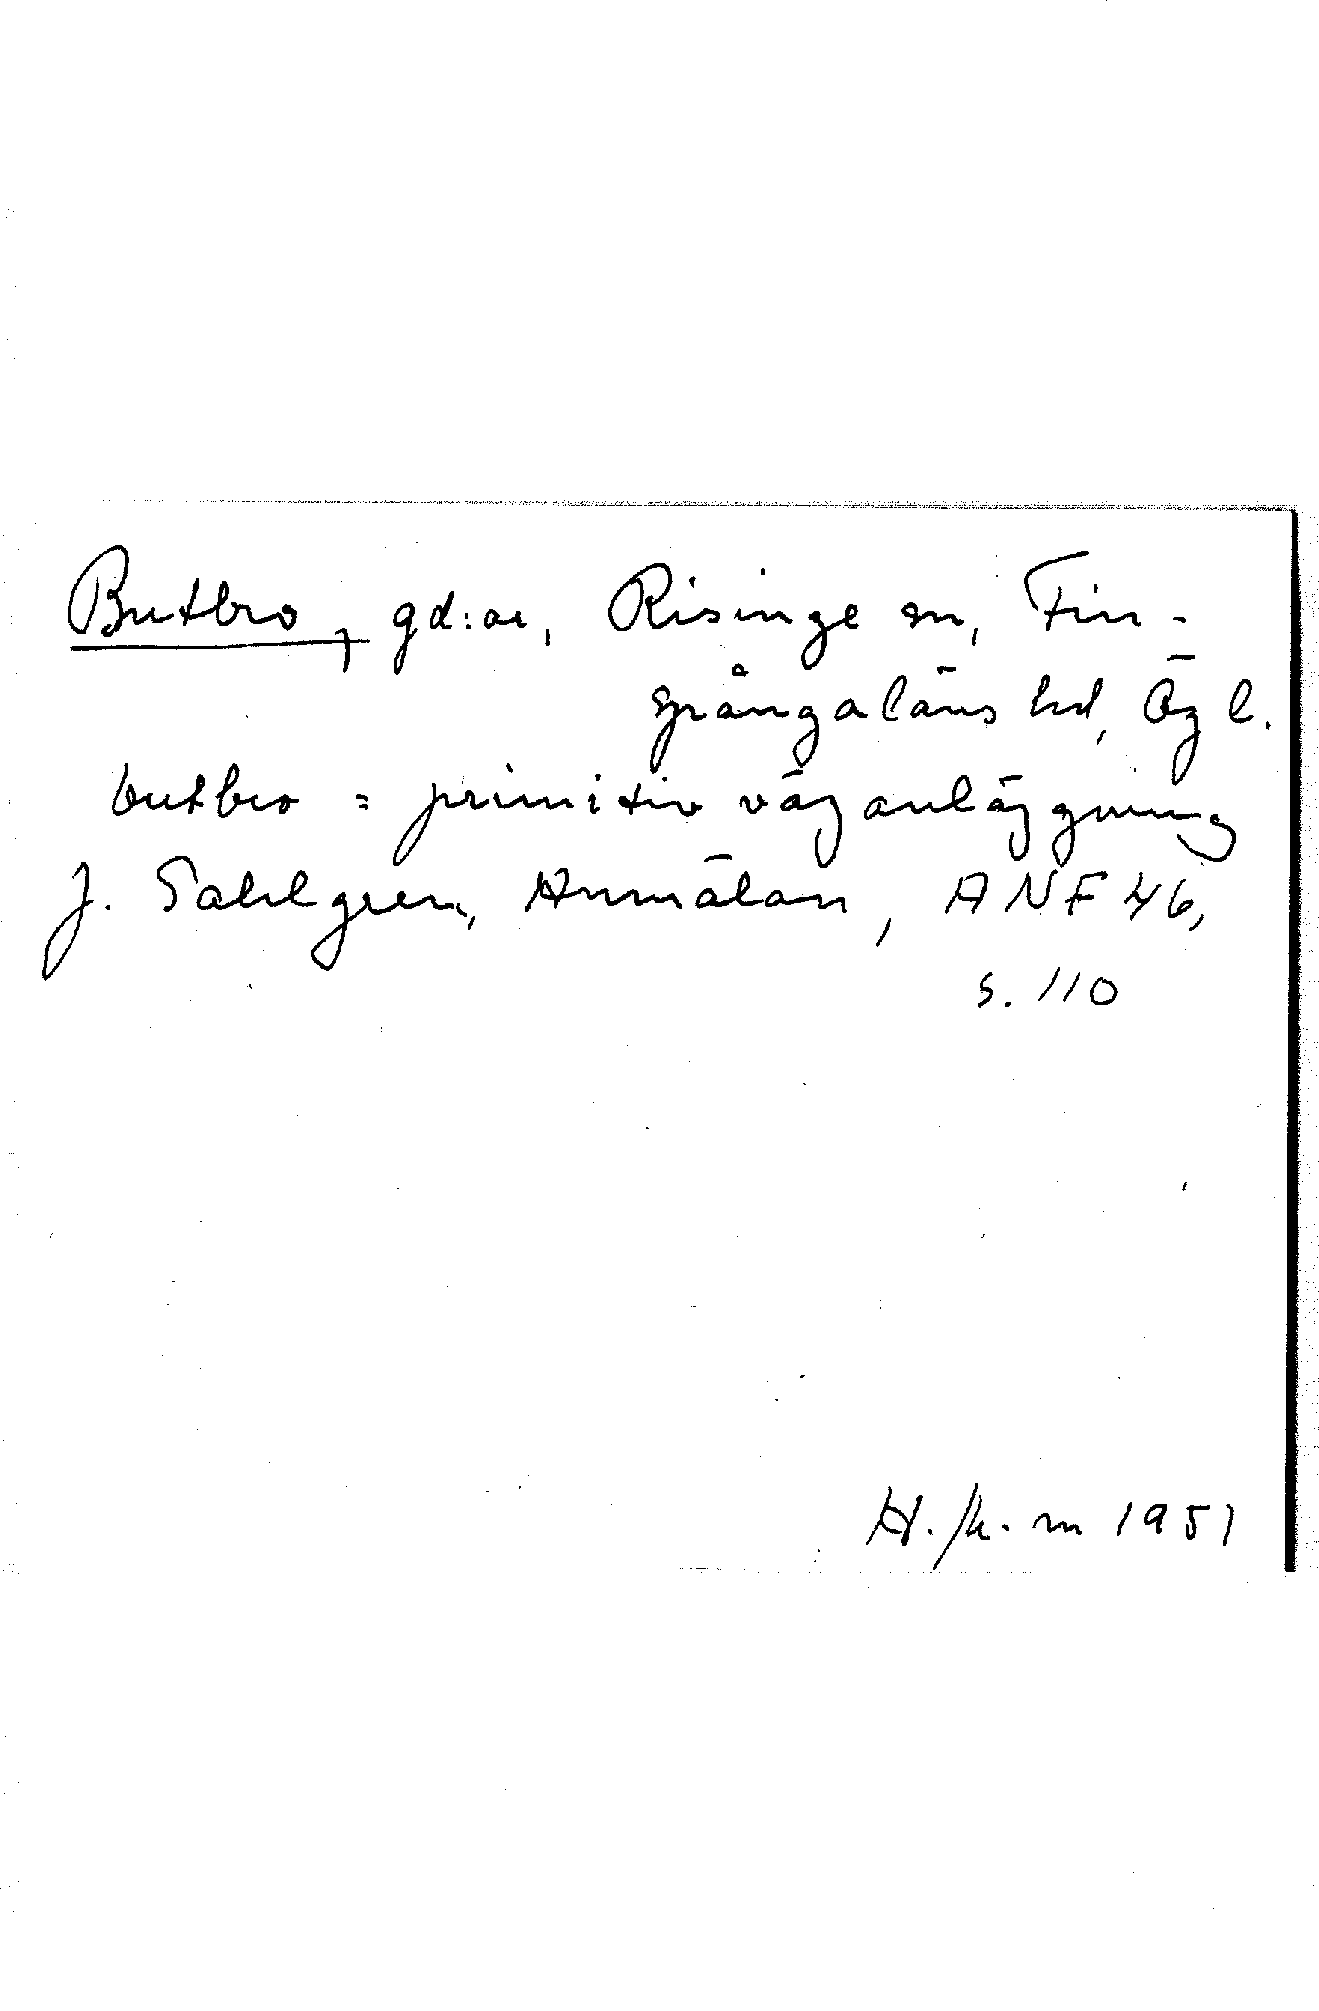 Butbro, gd:ar, Risinge sn, Fin-
spångaläns hd, Ögl.
butbro = primitiv väganläggning
J. Sahlgren, Anmälan, ANF 46,
s. 110
m 1951